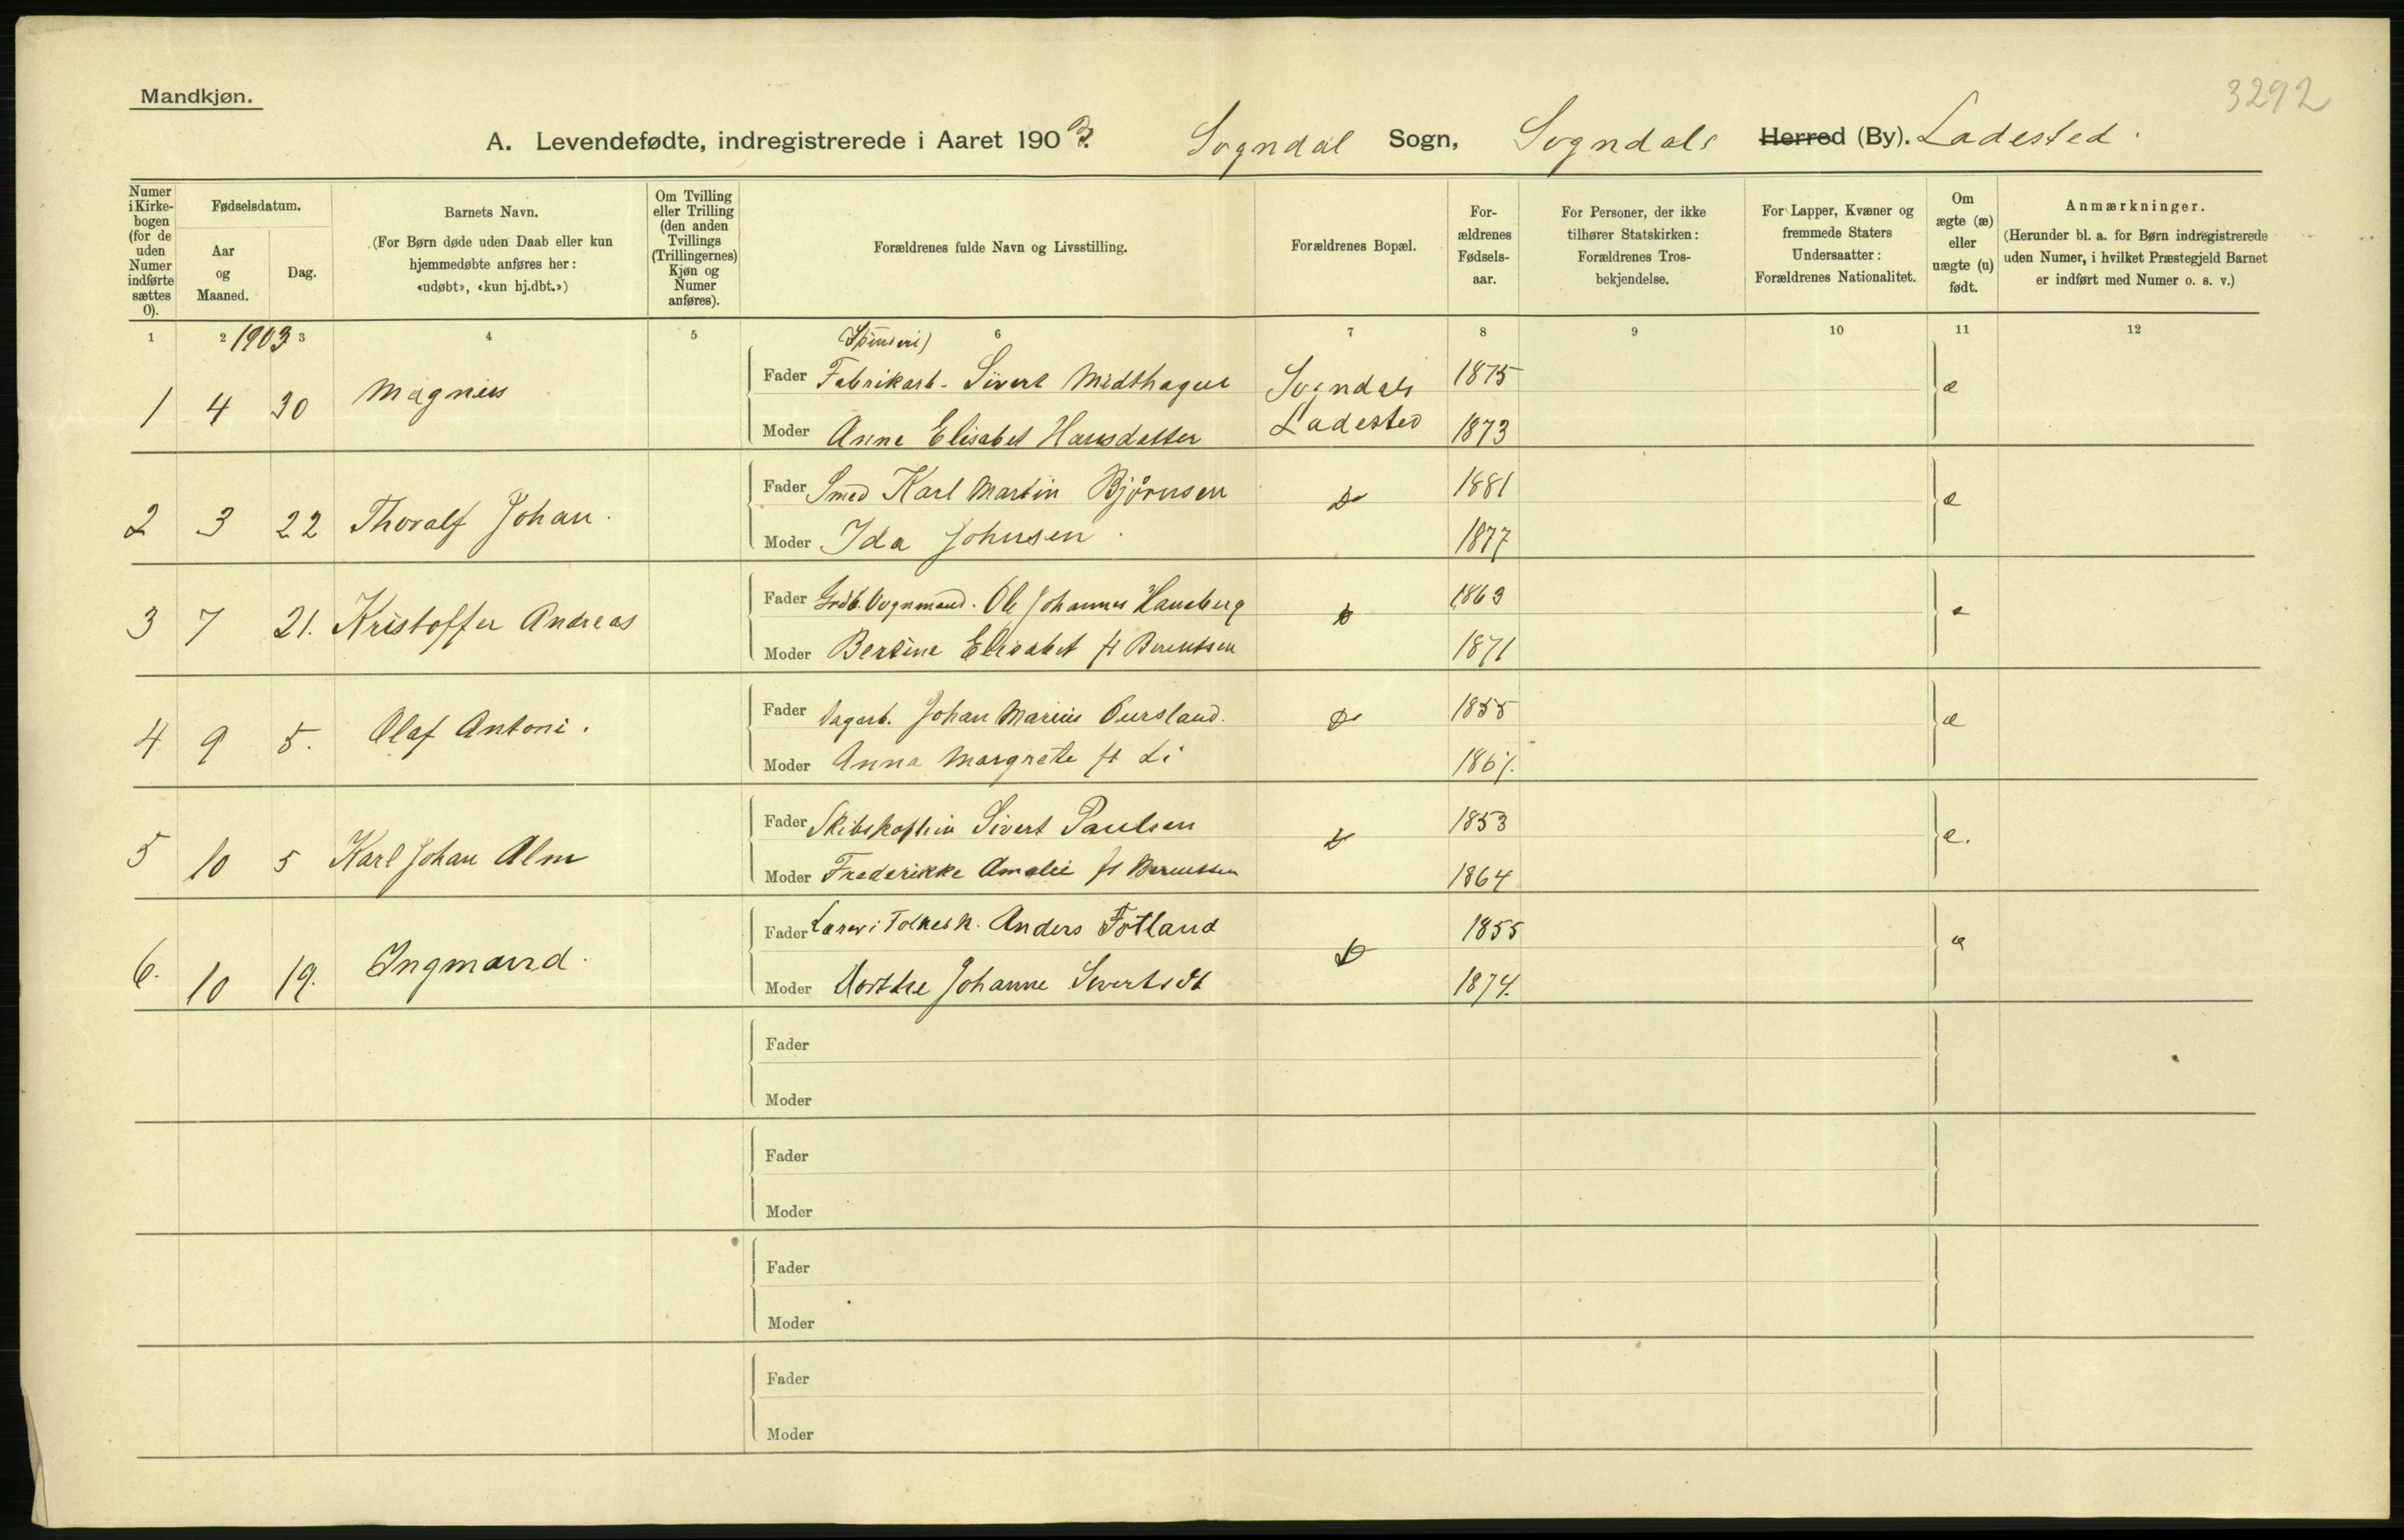 3292
Mandkjøn.
A. Levendefødte, indregistrerede i Aaret 1903. Sogndal Sogn, Sogndals Herred (By). Ladested.
Numer i Kirkebogen (for de uden Numer indførte sættes 0).
Fødselsdatum.
Aar og Maaned.
Dag.
Barnets Navn.
(For Børn døde uden Daab eller kun hjemmedøbte anføres her: «udøbt», «kun hj.dbt.»)
Om Tvilling eller Trilling (den anden Tvillings (Trillingernes) Kjøn og Numer anføres).
Forældrenes fulde Navn og Livsstilling.
Forældrenes Bopæl.
Forældrenes Fødselsaar.
For Personer, der ikke tilhører Statskirken: Forældrenes Trosbekjendelse.
For Lapper, Kvæner og fremmede Staters Undersaatter: Forældrenes Nationalitet.
Om ægte (æ) eller uægte (u) født.
Anmærkninger.
(Herunder bl. a. for Børn indregistrerede uden Numer, i hvilket Præstegjeld Barnet er indført med Numer o. s. v.)
1 2 1903 3 4 5 6 7 8 9 10 11 12
1 4 30 Magnus
Fader Fabrikarb. Sivert Midthagen Sogndals 1875 æ
Moder Anne Elisabet Hansdatter Ladested 1873
2 3 22 Thoralf Johan.
Fader Smed Karl Martin Bjørnsen Do 1881 æ
Moder Ida Johnsen 1877
3 7 21. Kristoffer Andreas
Fader Vognmand. Ole Johannes Hauaberg Do 1863 æ
Moder Bertine Elisabet ft Berentsen 1871
4 9 5. Olaf Antoni.
Fader Dagarb. Johan Marius Do 1855 æ
Moder Anna Margrete ft Li
5 10 5 Karl Johan Alm
Fader Skibskaptein Sivert Paulsen Do 1853 æ.
Moder Frederikke Amalie ft Berentsen 1864
6. 10 19. Ingmand.
Fader Lærer i Folkesk. Anders Fotland Do 1855 æ
Moder Dorthe Johanne Sivertsdt 1874.
Fader
Moder
Fader
Moder
Fader
Moder
Fader
Moder